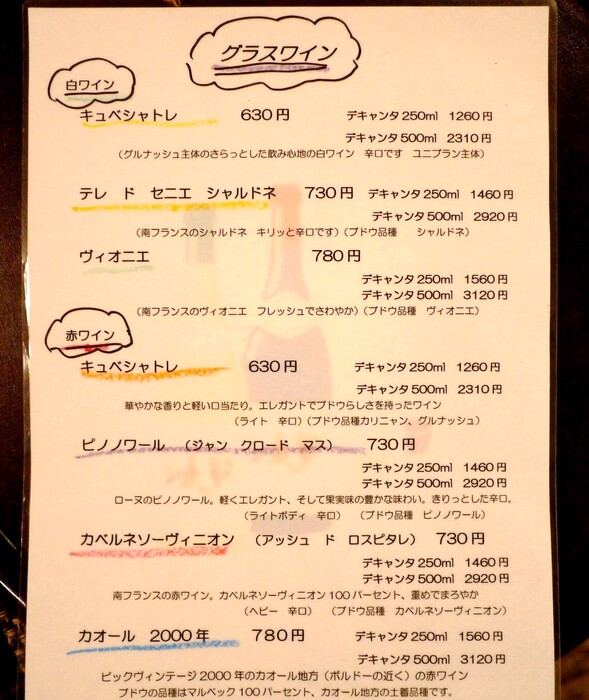 グラスワイン
白ワイン
キュベシャトレ 630円 デキャンタ250ml 1260円
デキャンタ500ml 2310円
(グルナッシュ主体のさらっとした飲み心地の白ワイン 辛口です ユニブラン主体)
テレ ド セニエ シャルドネ 730円 デキャンタ250ml 1460円
デキャンタ500ml 2920円
(南フランスのシャルドネ キリッと辛口です)(ブドウ品種 シャルドネ)
ヴィオニエ 780円
デキャンタ250ml 1560円
デキャンタ500ml 3120円
(南フランスのヴィオニエ フレッシュでさわやか)(ブドウ品種 ヴィオニエ)
赤ワイン
キュベシャトレ 630円 デキャンタ250ml 1260円
デキャンタ500ml 2310円
華やかな香りと軽い口当たり。エレガントでブドウらしさを持ったワイン
(ライト 辛口)(ブドウ品種カリニャン、グルナッシュ)
ピノノワール (ジャン クロード マス) 730円
デキャンタ250ml 1460円
デキャンタ500ml 2920円
ローヌのピノノワール。軽くエレガント、そして果実味の豊かな味わい。きりっとした辛口。
(ライトボディ 辛口) (ブドウ品種 ピノノワール)
カベルネソーヴィニオン (アッシュ ド ロスピタレ) 730円
デキャンタ250ml 1460円
デキャンタ500ml 2920円
南フランスの赤ワイン。カベルネソーヴィニオン100パーセント、重めでまろやか
(ヘビー 辛口) (ブドウ品種 カベルネソーヴィニオン)
カオール 2000年 780円 デキャンタ250ml 1560円
デキャンタ500ml 3120円
ビックヴィンテージ2000年のカオール地方(ボルドーの近く)の赤ワイン
ブドウの品種はマルベック100パーセント、カオール地方の土着品種です。